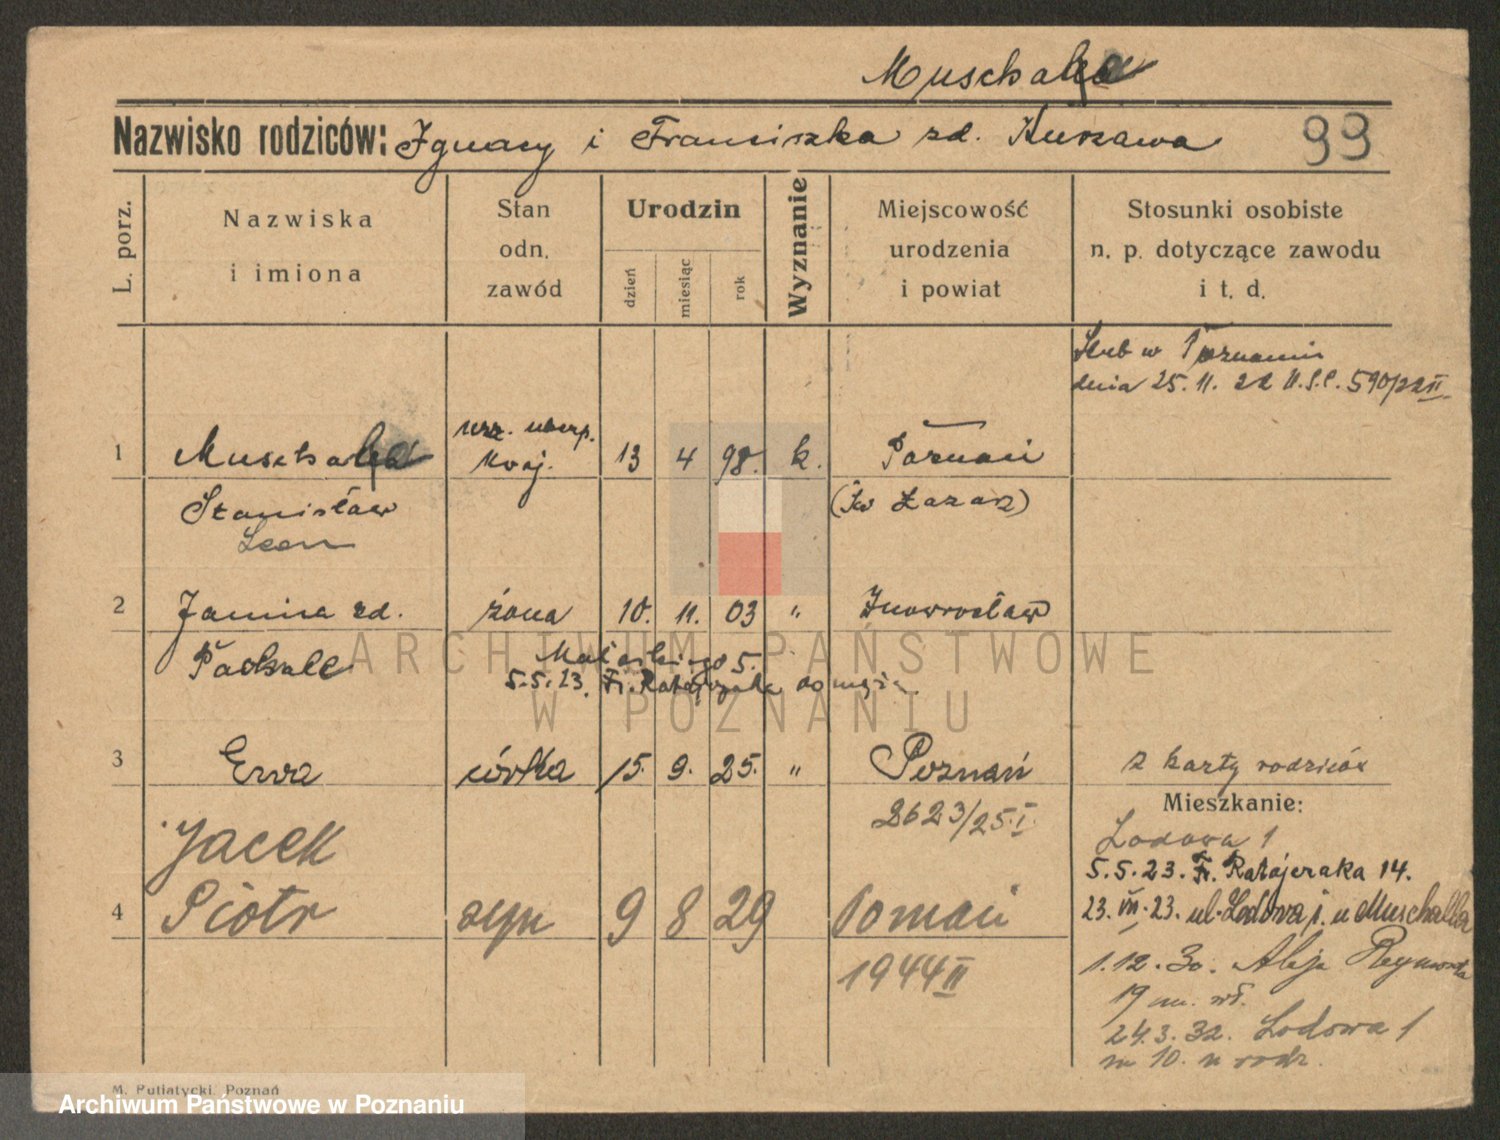 Muschalla
Nazwisko rodziców: Ignacy i Franciszka zd. Kurzawa 99
L. porz.
Nazwiska
i imiona
Stan
odn.
zawód
Urodzin
dzień
miesiąc
rok
Wyznanie
Miejscowość
urodzenia
i powiat
Stosunki osobiste
n. p. dotyczące zawodu
i t. d.
Ślub w Poznaniu
dnia 25.11.22 U.S.C. 590/22 II
1 Muschalla urz. ubezp. kraj. 13 4 98. k. Poznań
Stanisław (Św Łazarz)
Leon
2 Janina zd. żona 10. 11. 03 " Inowrocław
5.
5.5.23. Fr. Ratajczaka do męża
3 Ewa córka 15. 9. 25. " Poznań z karty rodziców
2623/25 I.
Mieszkanie:
Lodowa 1
5.5.23. Fr. Ratajczaka 14.
23.VII.23. ul. Lodowa 1. u Muschalla
Jacek
4 Piotr syn 9 8 29 Poznań
1944 II
1.12.30. Aleja Reymonta
19 m. wł.
24.3.32. Lodowa 1
m 10. u rodz.
M. Putiatycki, Poznań
ARCHIWUM PAŃSTWOWE
W POZNANIU
Archiwum Państwowe w Poznaniu